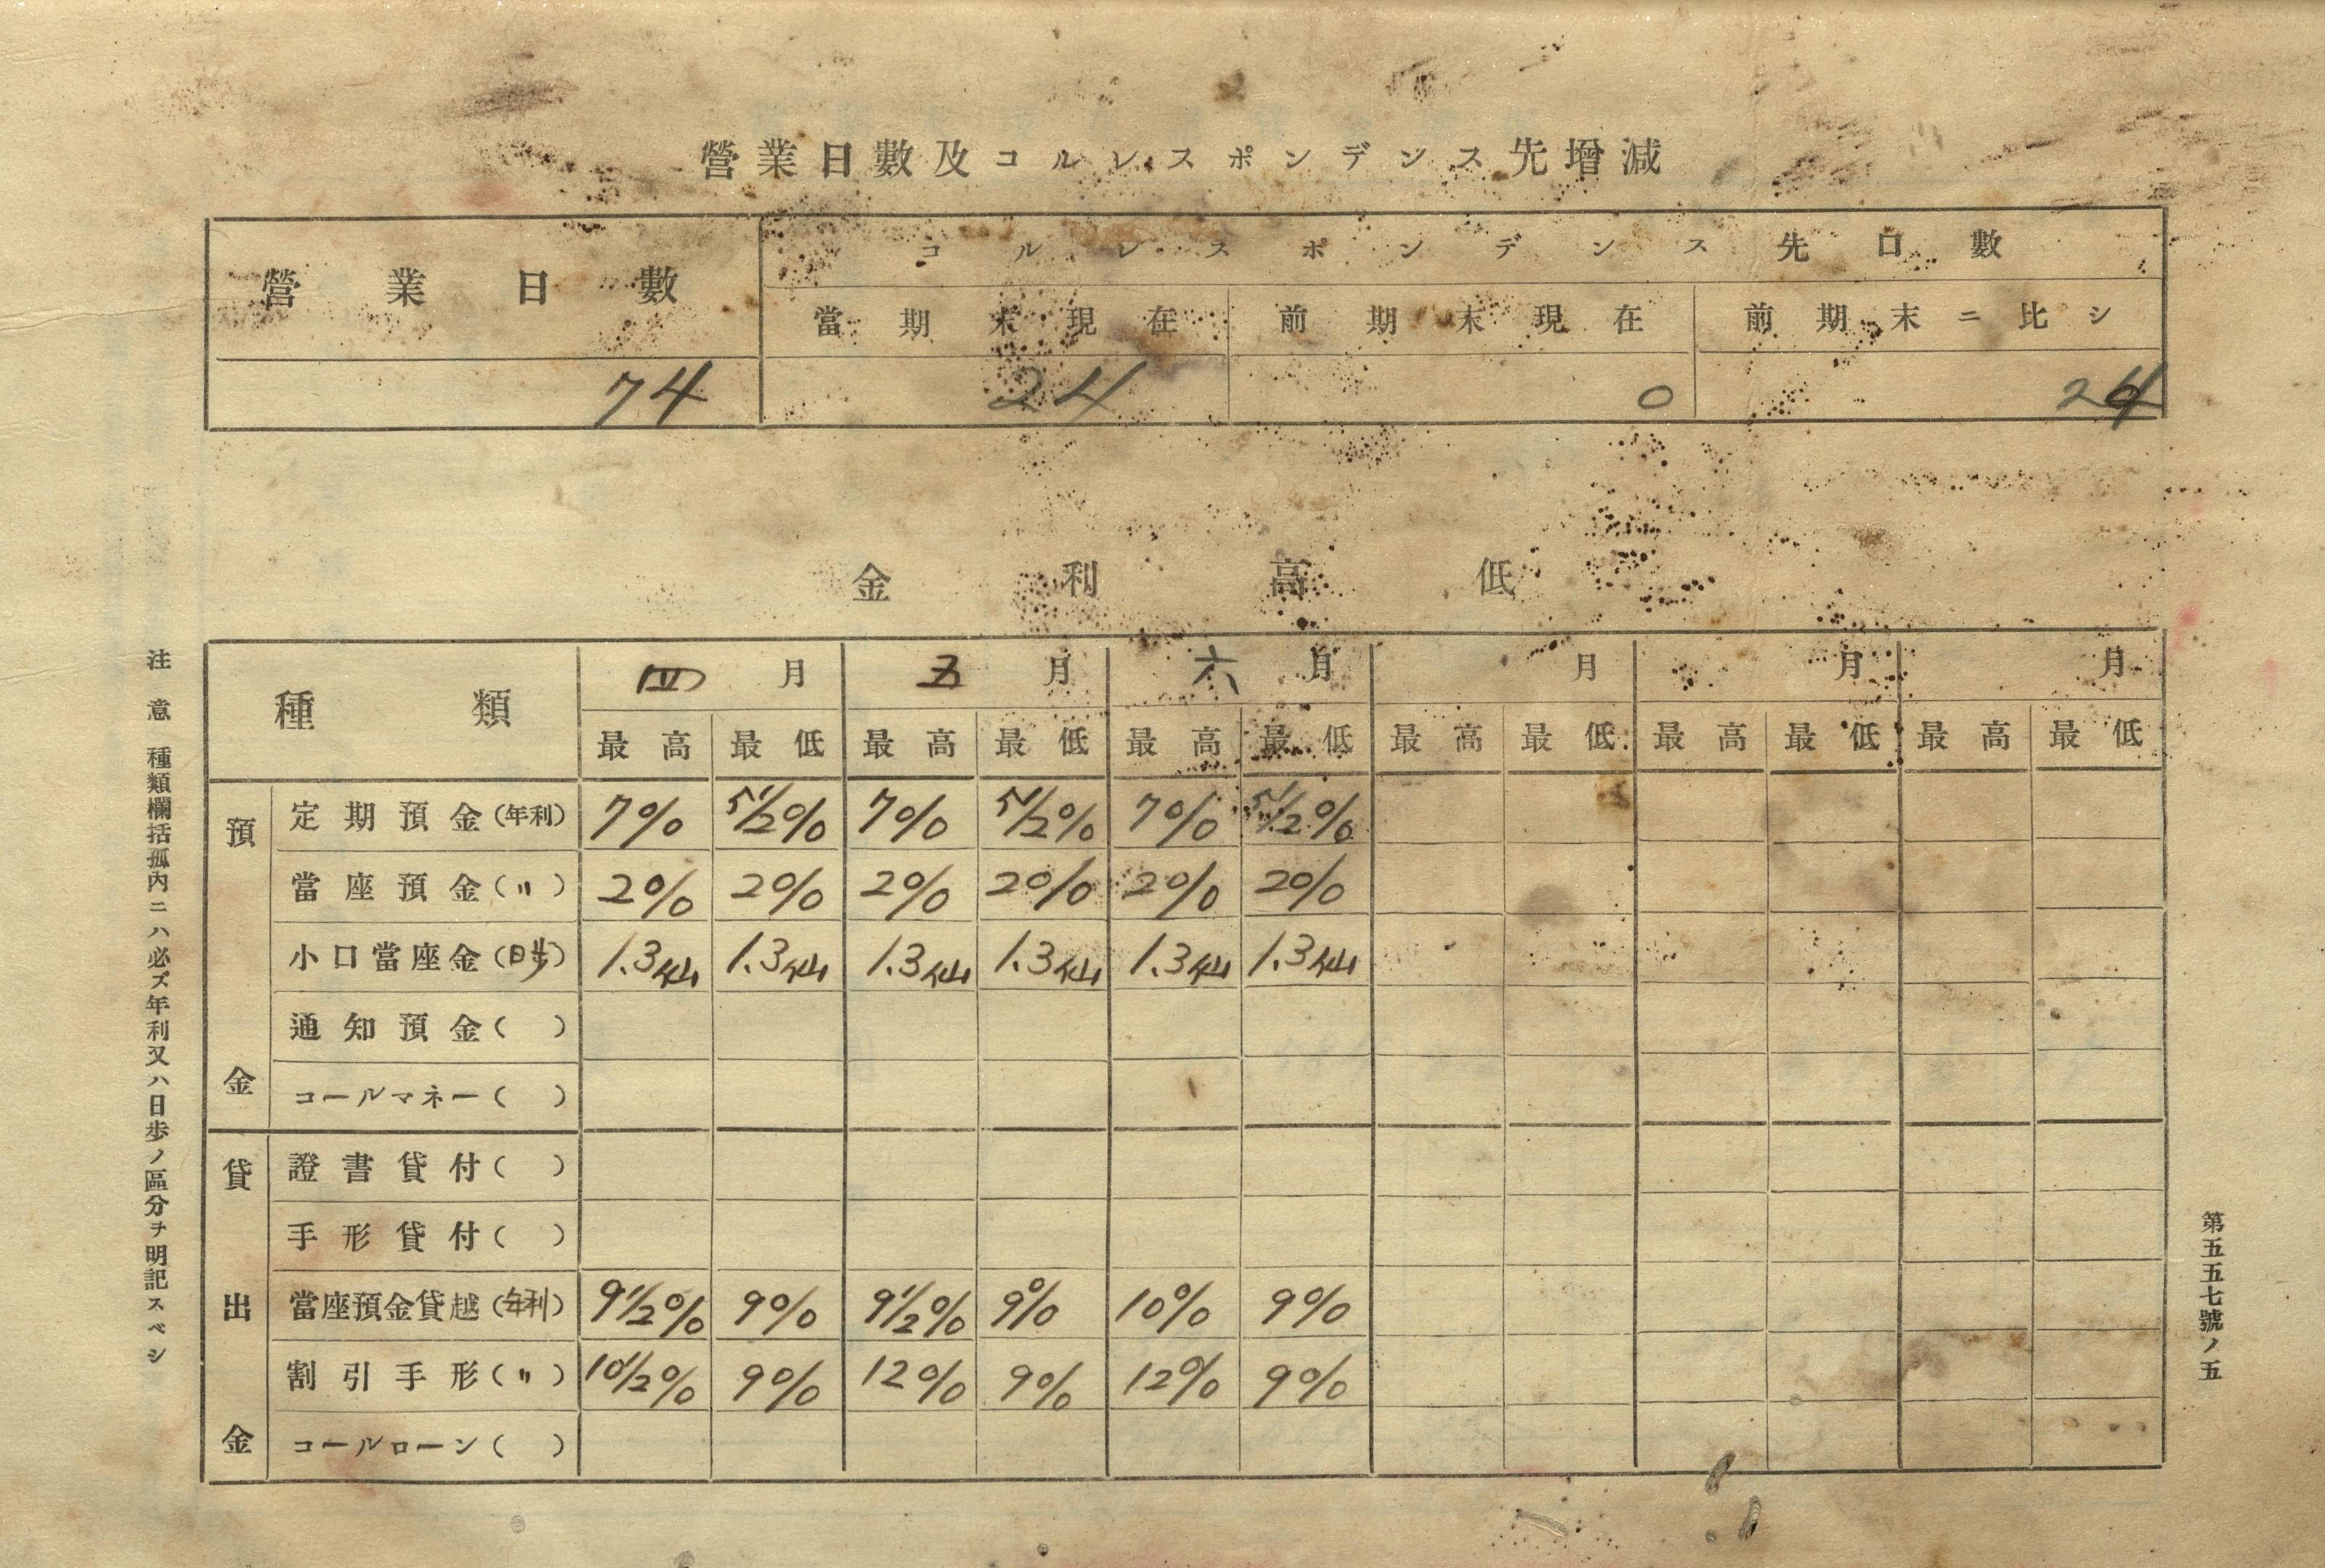 營業日數及コルレスポンデンス先增減
營業日數 コルレスポンデンス先口數
當期末現在 前期末現在 前期末ニ比シ
74 24 0 24
金利高低
種類 四月 五月 六月 月 月 月
最高 最低 最高 最低 最高 最低 最高 最低 最高 最低 最高 最低
預金
定期預金(年利) 7% 5 1/2% 7% 5 1/2% 7% 5 1/2%
當座預金(〃) 2% 2% 2% 2% 2% 2%
小口當座金(日歩) 1.3仙 1.3仙 1.3仙 1.3仙 1.3仙 1.3仙
通知預金( )
コールマネー( )
貸出金
證書貸付( )
手形貸付( )
當座預金貸越(年利) 9 1/2% 9% 9 1/2% 9% 10% 9%
割引手形(〃) 10 1/2% 9% 12% 9% 12% 9%
コールローン( )
注意 種類欄括孤內ニハ必ズ年利又ハ日歩ノ區分ヲ明記スベシ
第五五七號ノ五